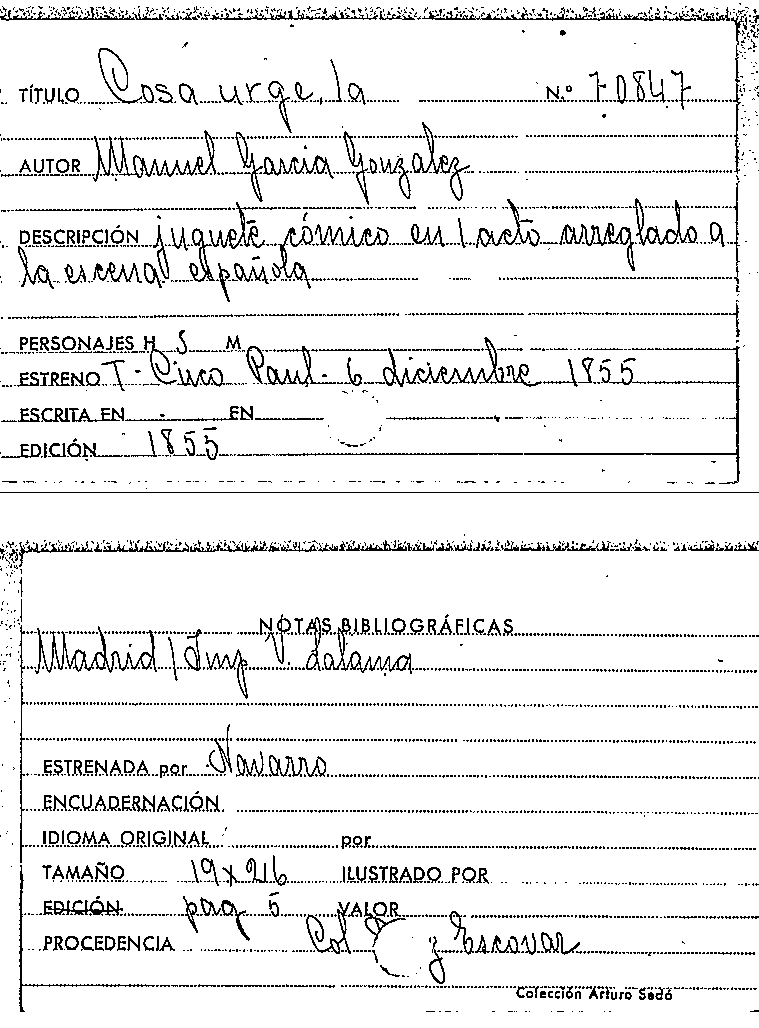 TÍTULO Cosa urge, la N.º 70847
AUTOR Manuel García González
DESCRIPCIÓN juguete cómico en 1 acto arreglado a
la escena española
PERSONAJES H 5 M
ESTRENO T. Circo Paul - 6 diciembre 1855
ESCRITA EN - EN
EDICIÓN 1855
NOTAS BIBLIOGRÁFICAS
Madrid / Imp V. Lalama
ESTRENADA por Navarro
ENCUADERNACIÓN
IDIOMA ORIGINAL por
TAMAÑO 19 x ILUSTRADO POR
EDICIÓN pag 5 VALOR
PROCEDENCIA Col z Escovar
Colección Arturo Sedó